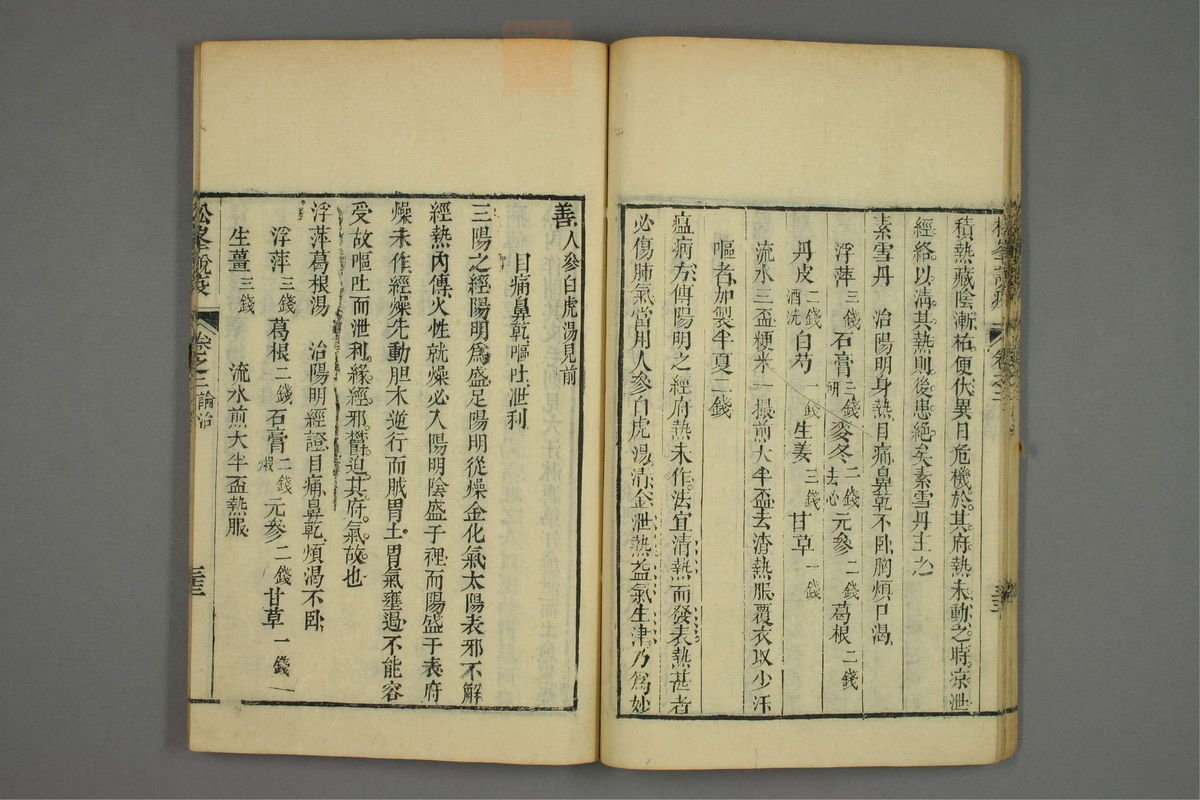 松峯說疫 卷之三
積熱藏陰漸格便伏異日危機於其府熱未動之時凉泄
經絡以清其熱則後患絕矣素雪丹主之
素雪丹 治陽明身熱目痛鼻乾不卧胸煩口渴
浮萍三錢 石膏三錢研 麥冬二錢去心 元參二錢 葛根二錢
丹皮二錢酒洗 白芍一錢 生姜三錢 甘草一錢
流水三盃粳米一撮煎大半盃去渣熱服覆衣取少汗
嘔者加製半夏二錢
瘟病方傳陽明之經府熱未作法宜清熱而發表熱甚者
必傷肺氣當用人參白虎湯清金泄熱益氣生津乃為妙
善人參白虎湯見前
目痛鼻乾嘔吐泄利
三陽之經陽明為盛足陽明從燥金化氣太陽表邪不解
經熱內傳火性就燥必入陽明陰盛于裡而陽盛于表府
燥未作經燥先動胆木逆行而賊胃土胃氣壅遏不能容
受故嘔吐而泄利緣經邪鬱迫其府氣故也
浮萍葛根湯 治陽明經證目痛鼻乾煩渴不卧
浮萍三錢 葛根二錢 石膏二錢煅 元參二錢 甘草一錢
生薑三錢 流水煎大半盃熱服
松峯說疫 卷之三 論治 三三